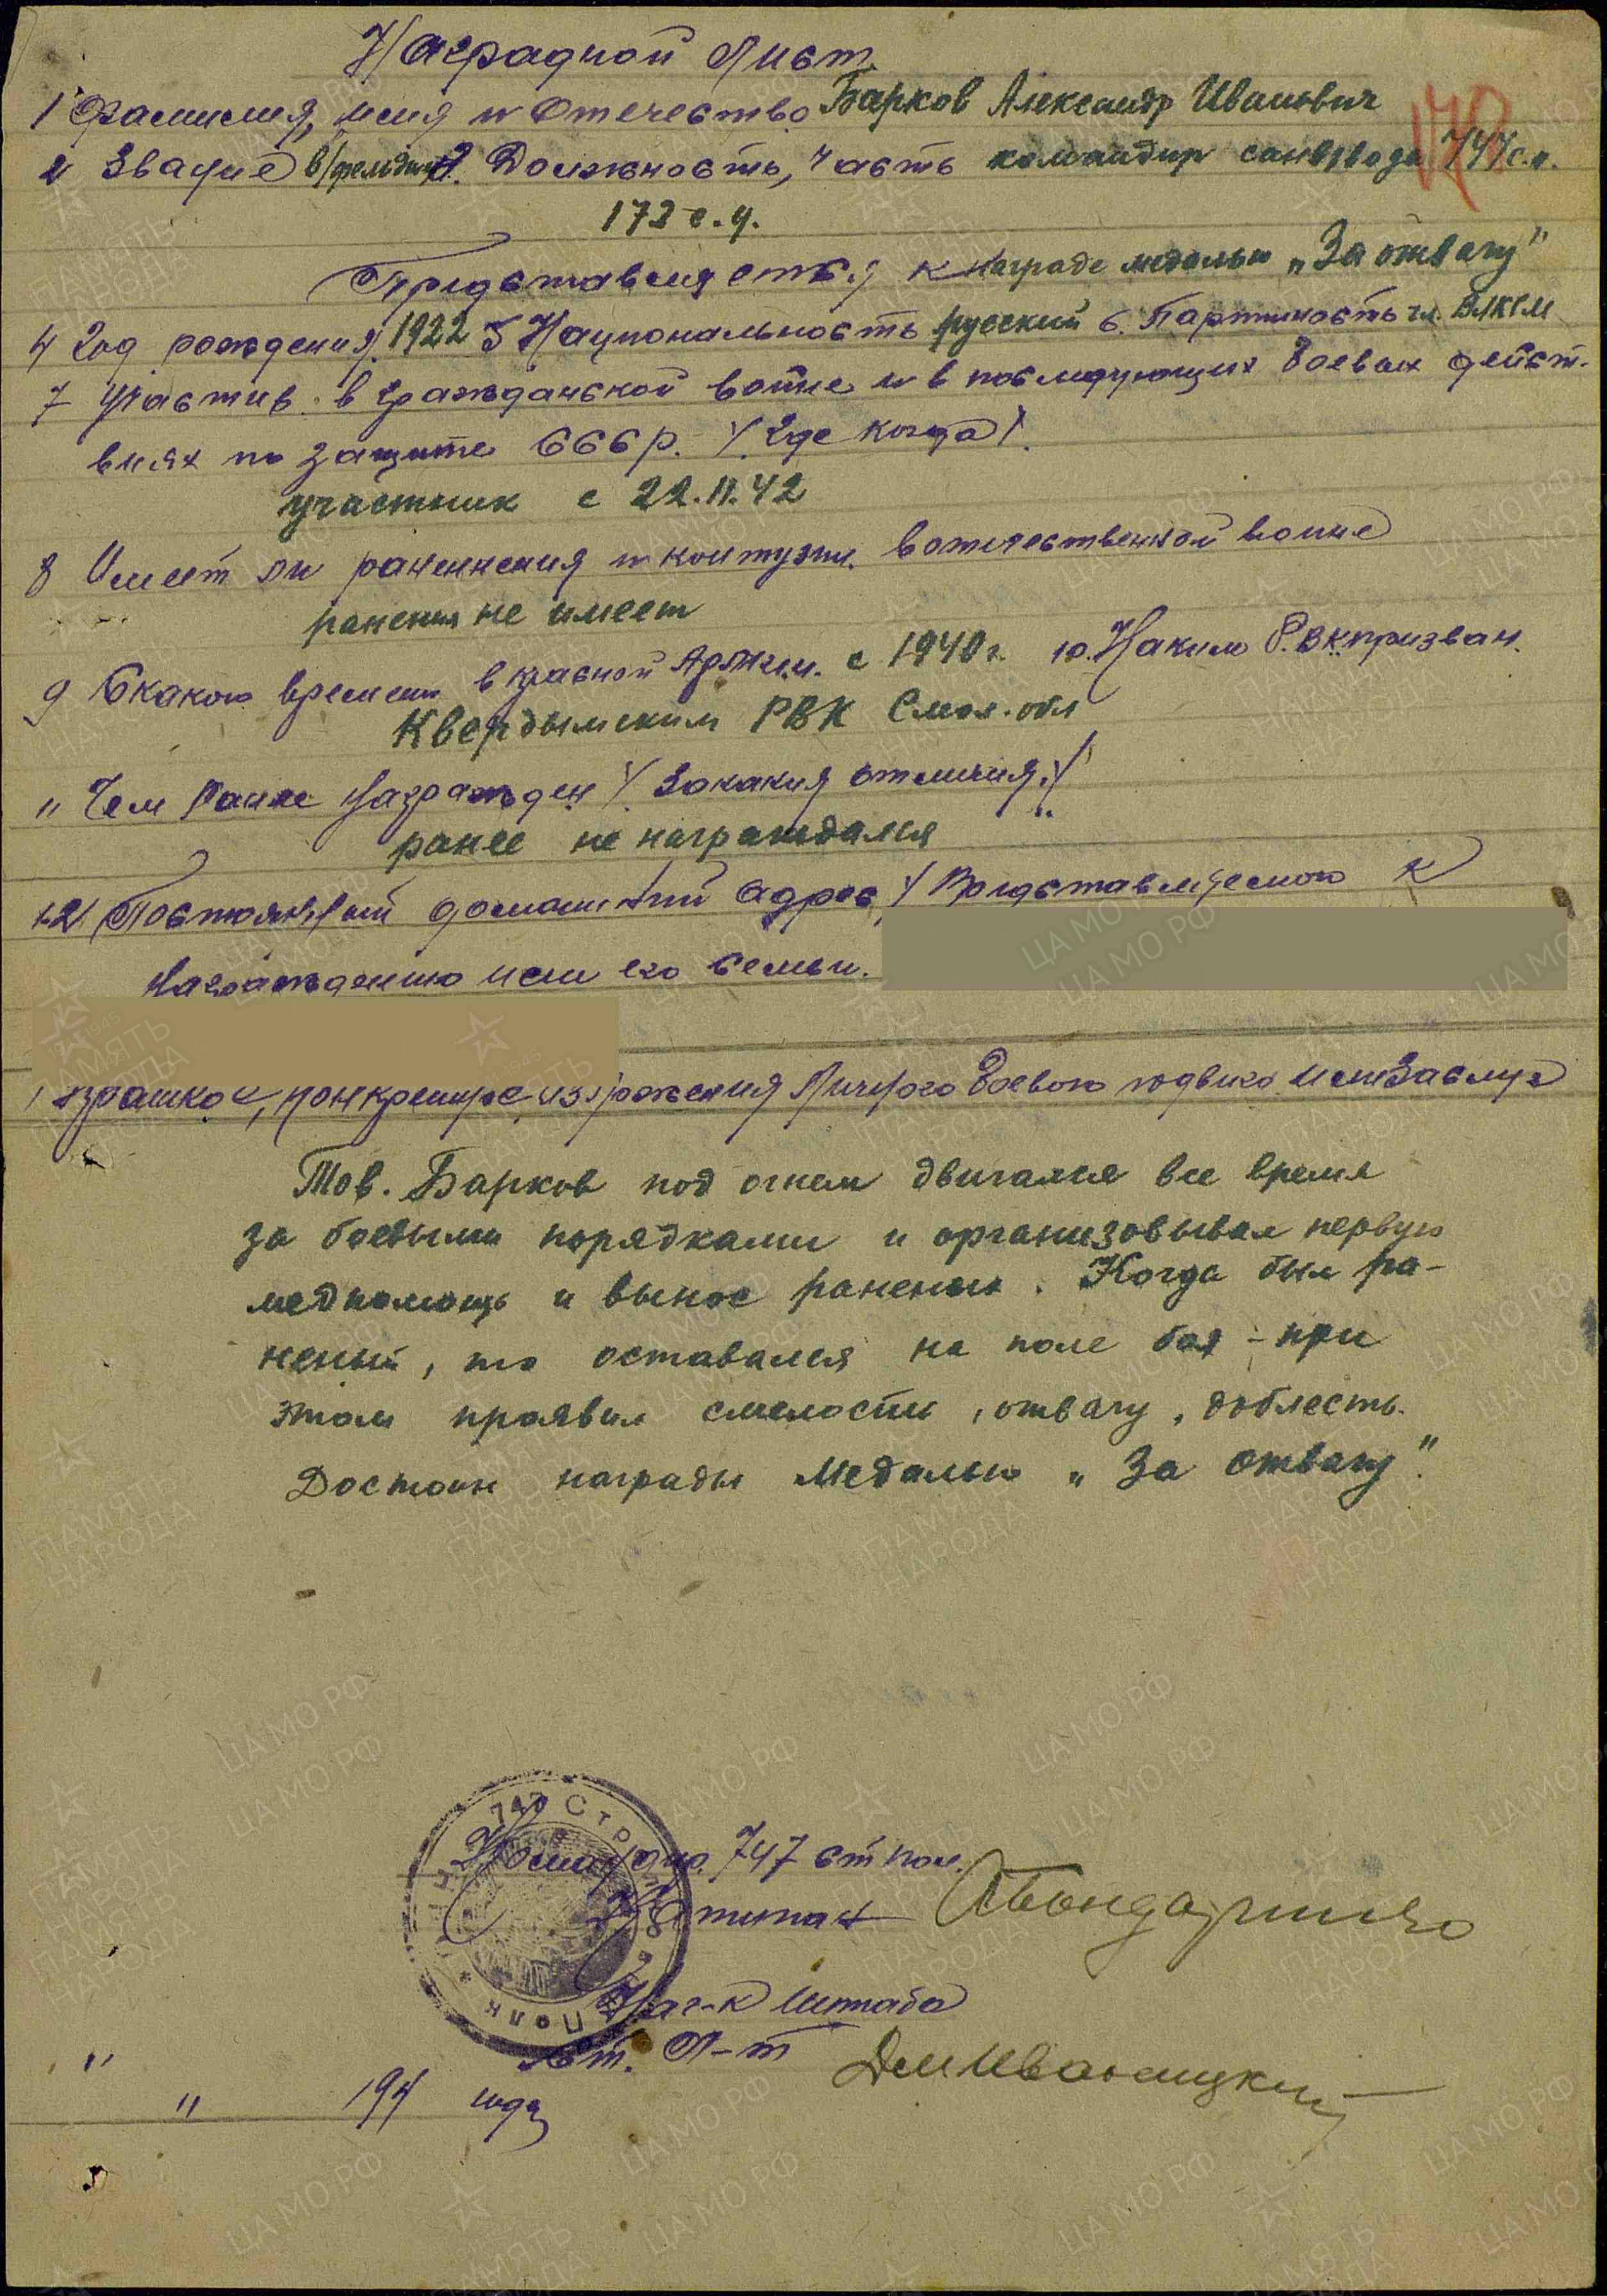 Наградной Лист
178
1 Фамилия, имя и Отечество Барков Александр Иванович
2 Звание в/фельдш. 3. Должность, часть командир санвзвода 747 с.п.
172 с.д.
Представляется к награде медалью „За отвагу"
4 Год рождения. 1922 5 Национальность русский 6. Партийность чл. ВЛКСМ
7 Участие в гражданской войне и в последующих боевых дейст-
виях по защите СССР. /. Где когда /.
участник с 22.11.42
8 Имеет ли раненнения и контузии. в отечественной войне
ранения не имеет
9 С какого времени в красной Армии. с 1940 г. 10. Каким Р.В.К призван.
РВК Смол. обл
11 Чем Ранее награжден /. За какия отличия./
ранее не награждался
12/ Постоянный домашний адрес / Представляемого к
Награждению или его семьи.
1 изложения Личного боевого подвига или Заслуг
Тов. Барков под огнем двигался все время
за боевыми порядками и организовывал первую
медпомощь и вынос раненых. Когда был ра-
неный, то оставался на поле боя – при
этом проявил смелость, отвагу, доблесть.
Достоин награды Медалью „За отвагу".
747 Стрелковый Полк
Командир. 747 стр пол.
Капитан Бондаренко
Нач-к Штаба
Ст. Л-т
" " 194 года
ПАМЯТЬ НАРОДА
ЦА МО РФ